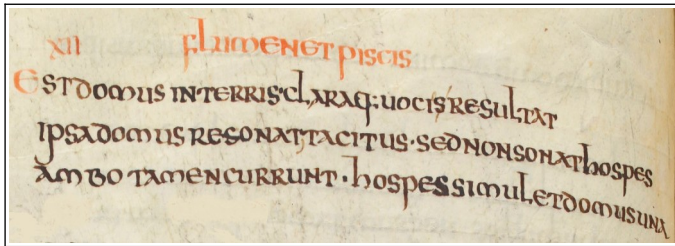 XII FLUMEN ET PISCIS
EST DOMUS IN TERRIS· CLARA Q: UOCIS RESULTAT
IPSA DOMUS RESONAT TACITUS· SED NON SONAT hOSPES
AMBO TAMEN CURRUNT· hOSPES SIMUL ET DOMUS UNA